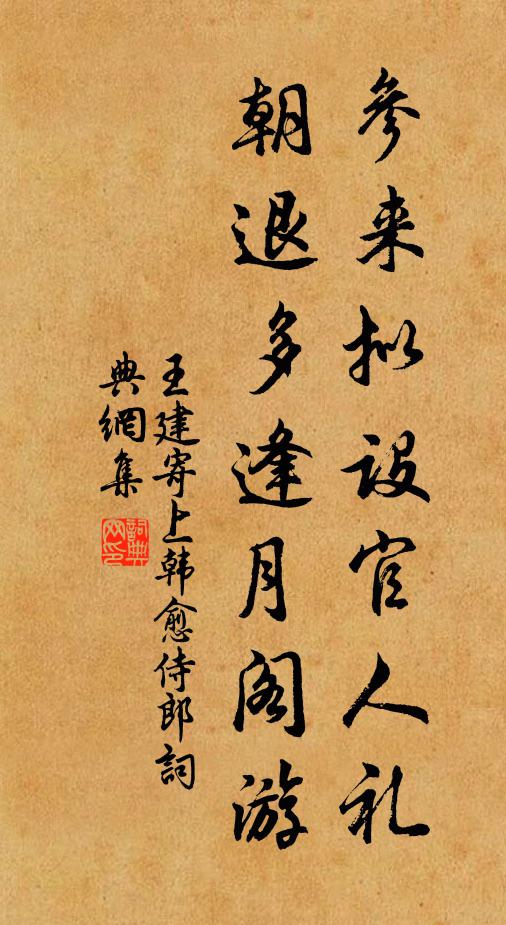 参来拟设官人礼
朝退多逢月阁游
王建寄上韩愈侍郎詞
典網集
詞典网印